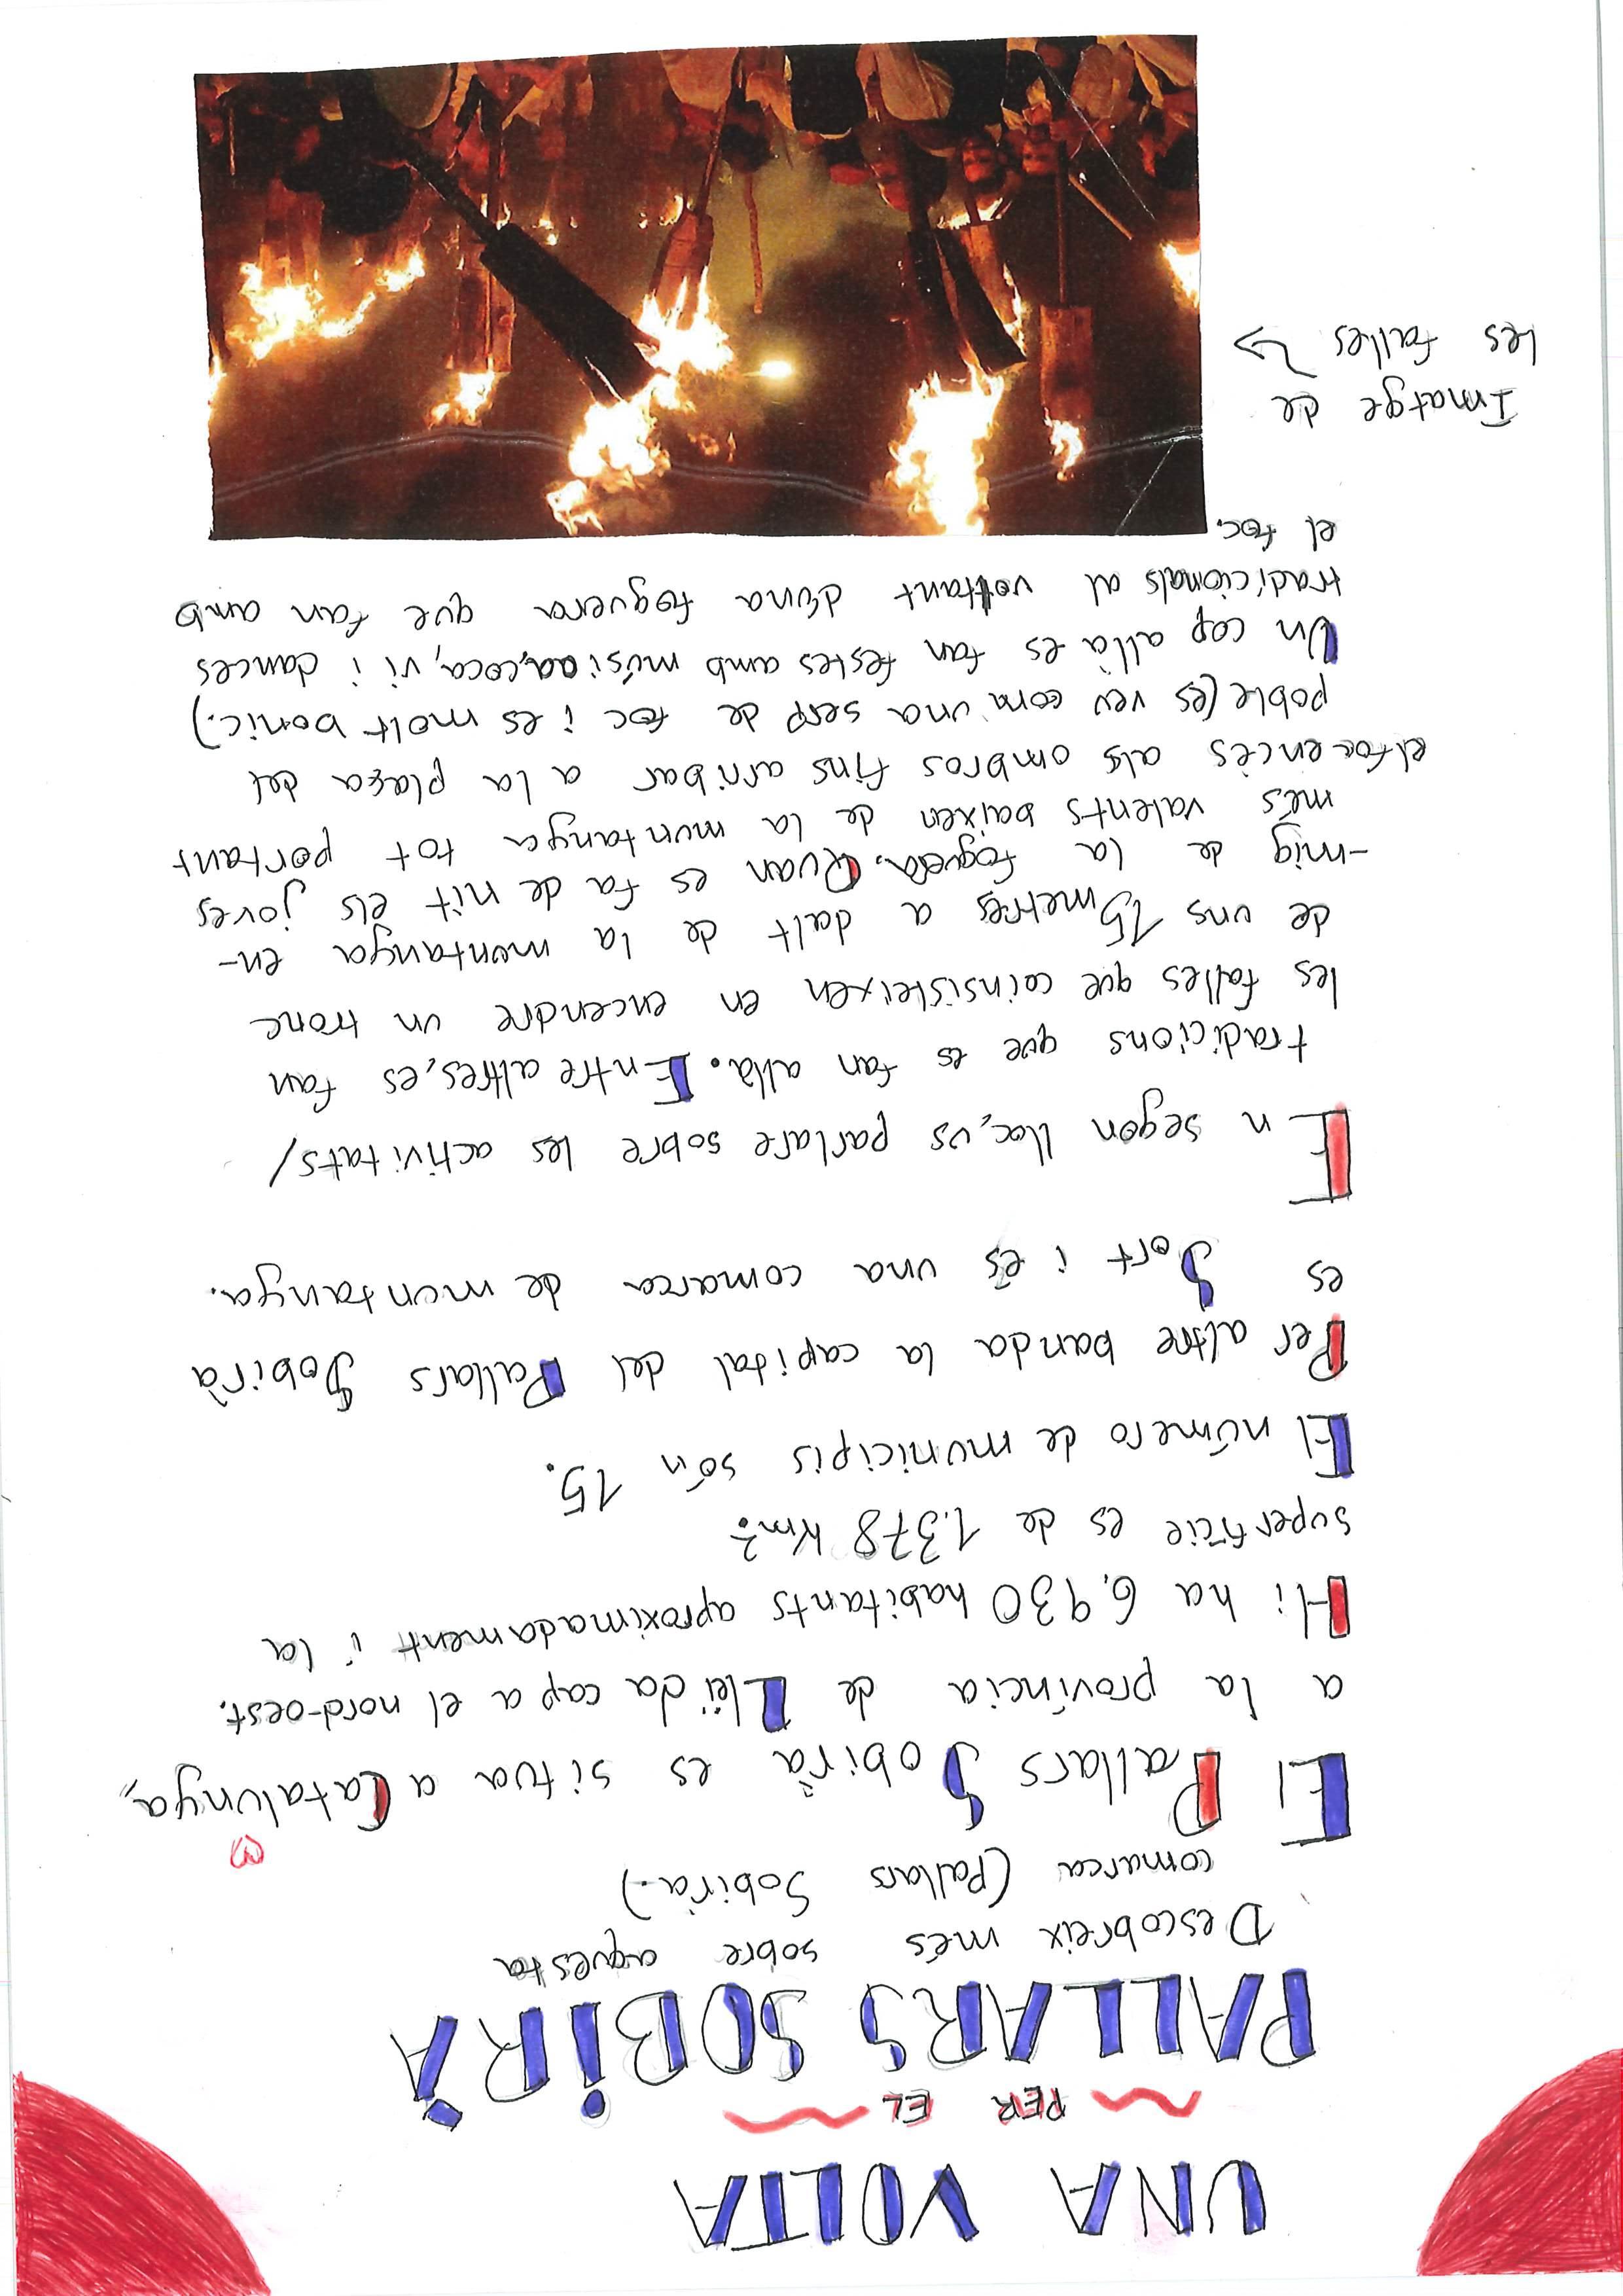 UNA VOLTA
PER EL
PALLARS SOBIRÀ
Descobreix més sobre aquesta
comarca (Pallars Sobirà.)
El Pallars Sobirà es situa a Catalunya,
a la província de Lleida cap a el nord-oest.
Hi ha 6.930 habitants aproximadament i la
superfície es de 1.378 Km².
El número de municipis són 15.
Per altre banda la capital del Pallars Sobirà
es Sort i és una comarca de muntanya.
En segon lloc, us parlare sobre les activitats/
tradicions que es fan allà. Entre altres, es fan
les falles que coinsisteixen en encendre un tronc
de uns 15 metres a dalt de la montanya en-
-mig de la foguera. Quan es fa de nit els joves
més valents baixen de la muntanya tot portant
el foc encès als ombros fins arribar a la plaça del
poble (es veu com una serp de foc i es molt bonic.)
Un cop allà es fan festes amb música, coca, vi i dances
tradicionals al voltant d'una foguera que fan amb
el foc.
Imatge de
les falles